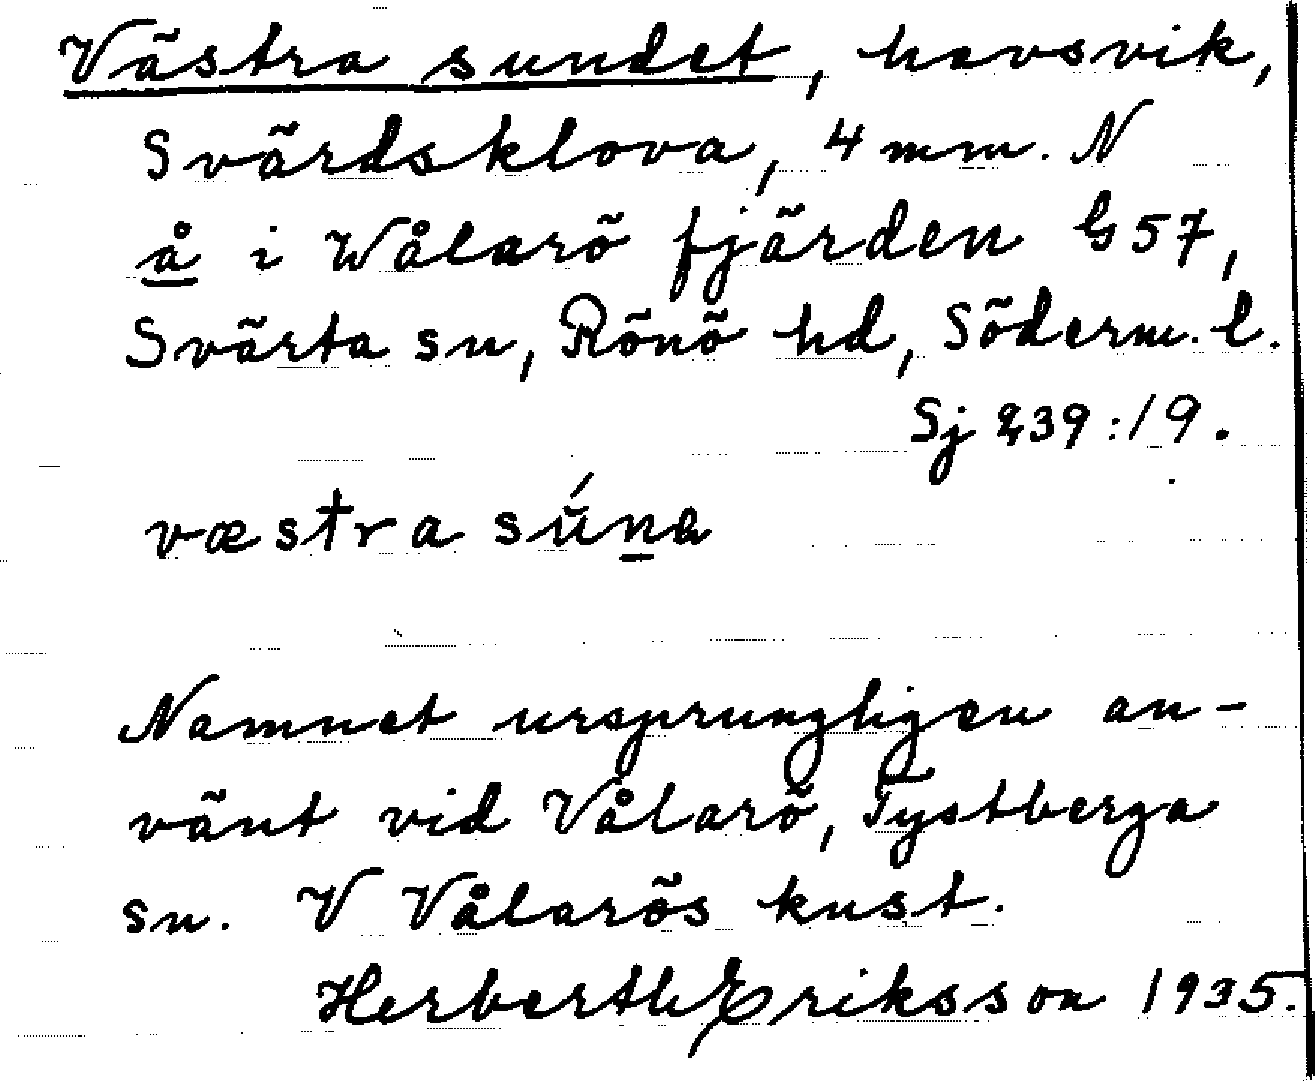 Västra sundet, havsvik,
Svärdsklova, 4 mm. N
å i Wålarö fjärden G57,
Svärta sn, Rönö hd, Söderm. l.
Sj 239:19.
væstra súna
Namnet ursprungligen an-
vänt vid Vålarö, Tystberga
sn. V Vålarös kust.
Herberth Eriksson 1935.